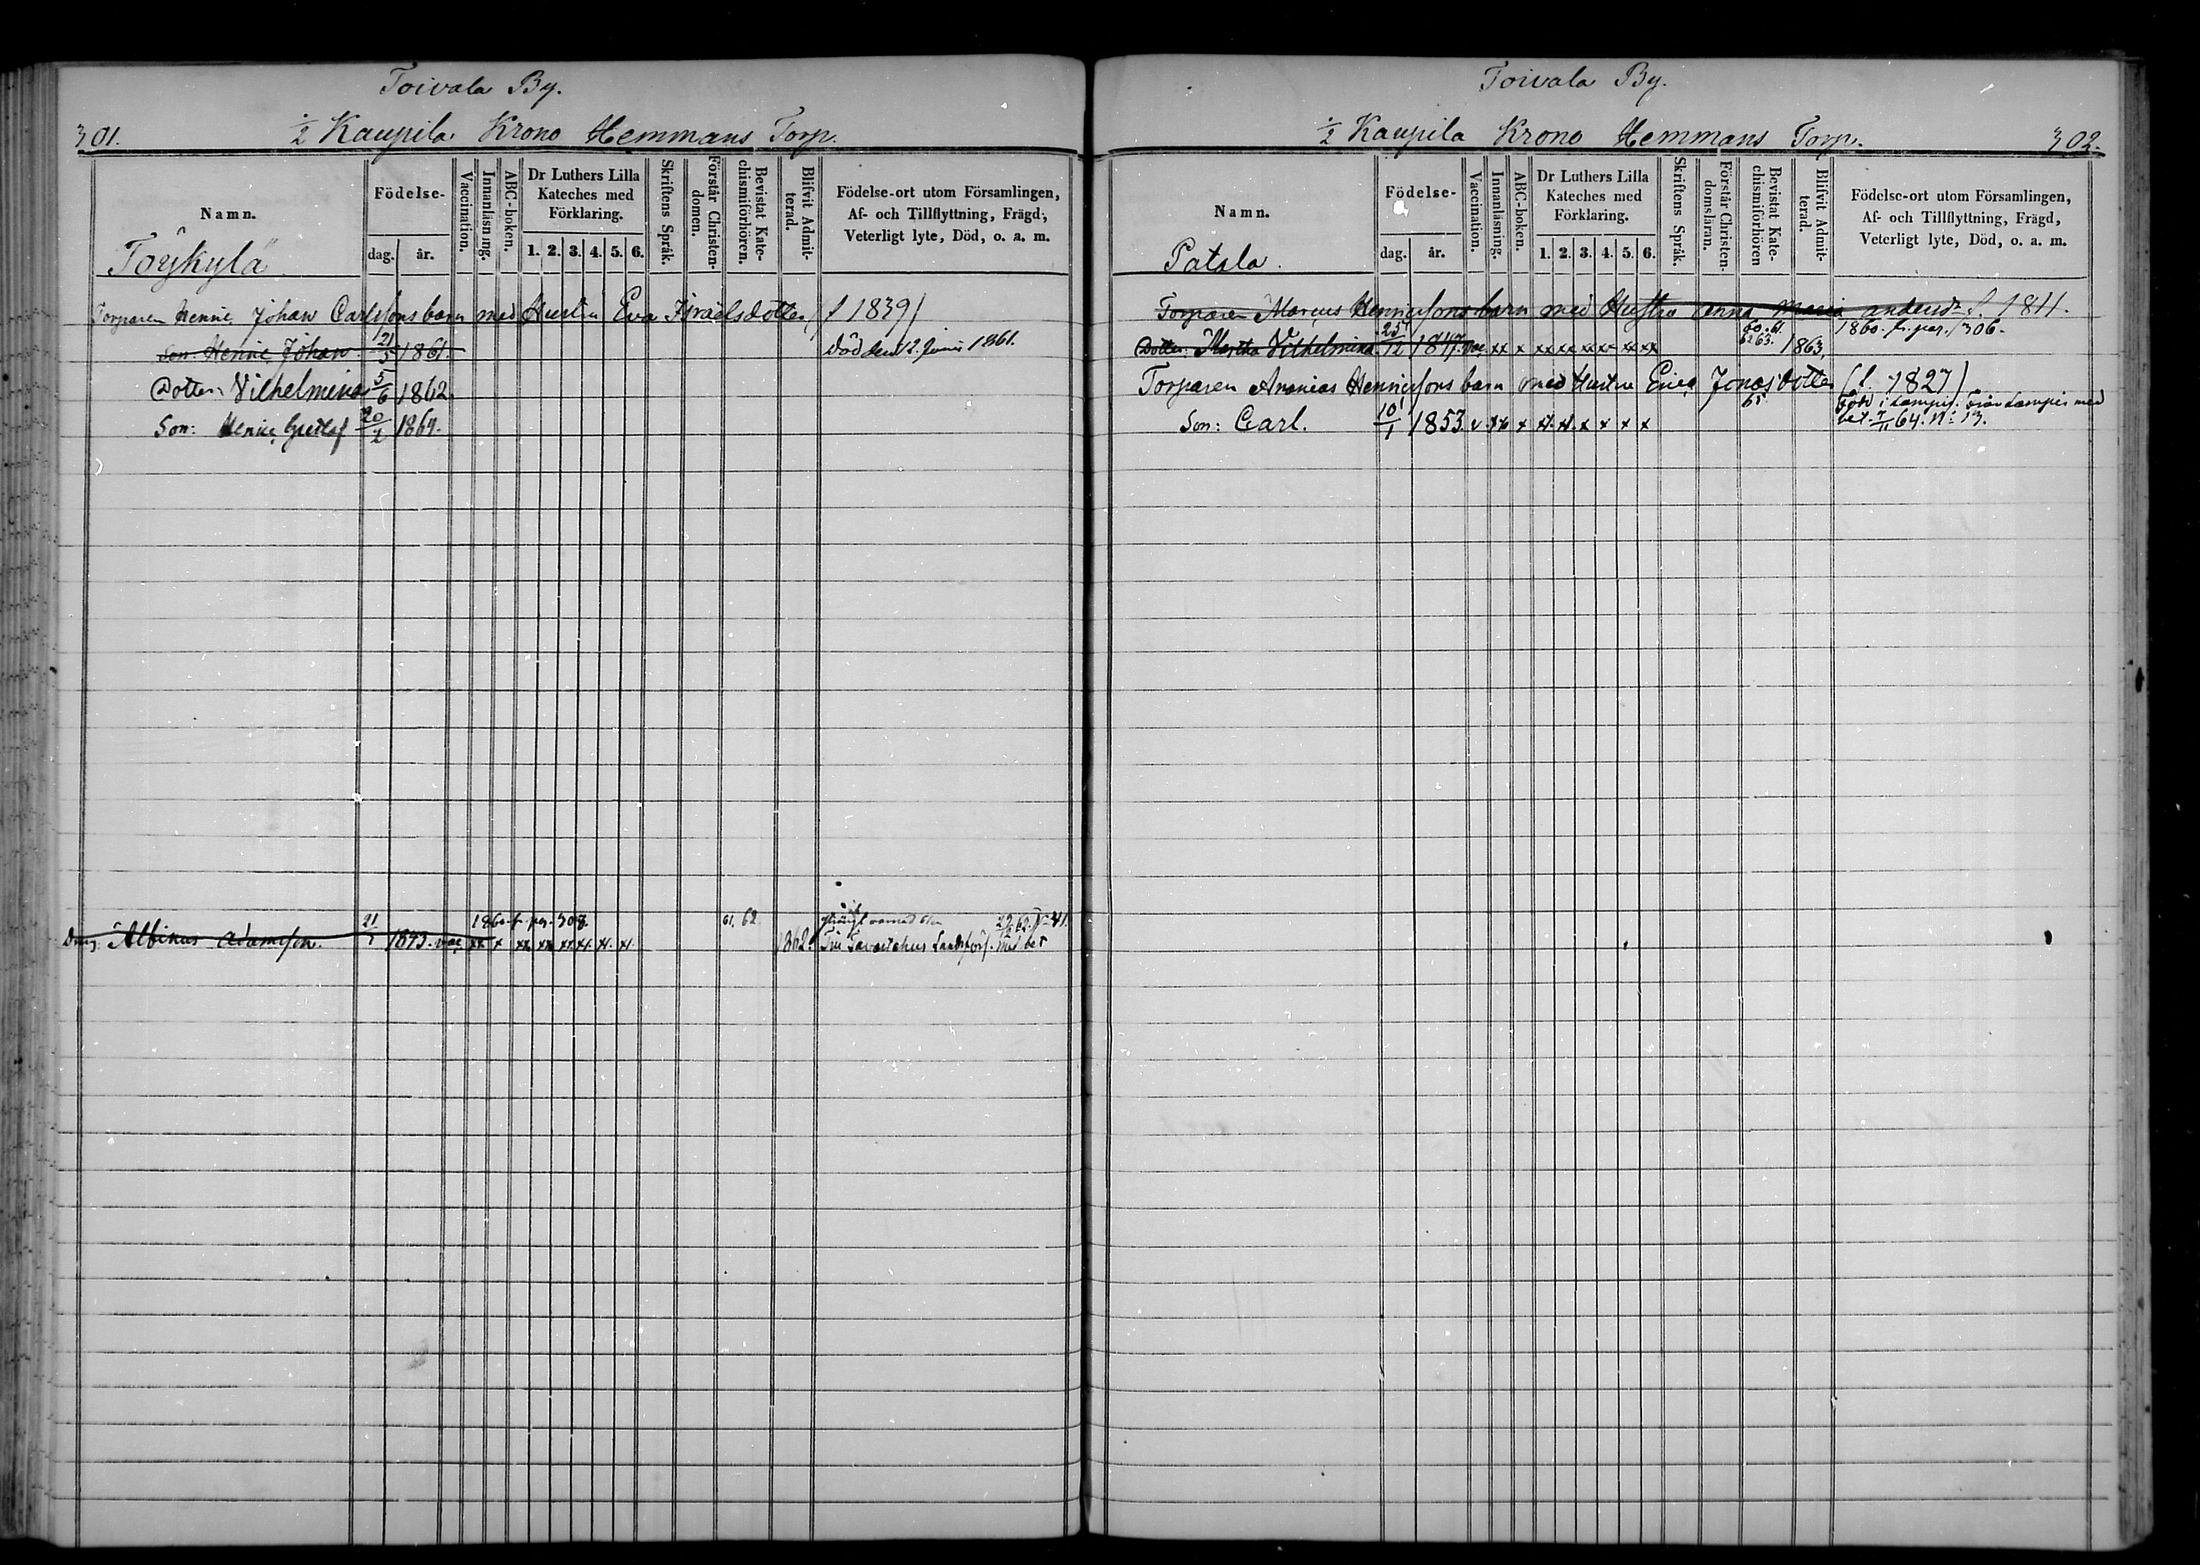 Toivala By.
301. 1/2 Kaupila Krono Hemmans Torp.
Namn.
Födelse-
dag. år.
Vaccination.
Innanläsning.
ABC-boken.
Dr Luthers Lilla Kateches med Förklaring.
1. 2. 3. 4. 5. 6.
Skriftens Språk.
Förstår Christen-domen.
Bevistat Kate-chismiförhören.
Blifvit Admit-terad.
Födelse-ort utom Församlingen,
Af- och Tillflyttning, Frägd,
Veterligt lyte, Död, o. a. m.
Töykylä
Torparen Henric Johan Carlssons barn med Hustru Eva Israelsdotter (f 1839)
Son: Henric Johan. 21/5 1861. Död den 12. Junii 1861.
Dotter: Vilhelmina 5/6 1862.
Son: Henric Gustaf 20/2 1864.
1860. fr. pag. 308. 61. 62.
Dreng Albinus Adamsson. 21/1 1843. vac. xx x xx xx xx x x x 1862. Till Tavastehus Landsförs. med bet
Toivala By.
1/2 Kaupila Krono Hemmans Torp. 302.
Namn.
Födelse-
dag. år.
Vaccination.
Innanläsning.
ABC-boken.
Dr Luthers Lilla Kateches med Förklaring.
1. 2. 3. 4. 5. 6.
Skriftens Språk.
Förstår Christen-domsläran.
Bevistat Kate-chismiförhören
Blifvit Admit-terad.
Födelse-ort utom Församlingen,
Af- och Tillflyttning, Frägd,
Veterligt lyte, Död, o. a. m.
Patala.
Torparen Marcus Henricssons barn med Hustru Anna Maria Andersdr f. 1811.
60. 61. 62 63. 1860. fr. pag. 306.
Dotter: Martha Vilhelmina. 25/12 1847. vac xx x xx xx xx xx xx xx 1863.
Torparen Ananias Henricssons barn med Hustru Erica Jonasdotter (f. 1827)
65 Född i Lampis. Från Lampis med
Son: Carl. 10/1 1853. v. xx x x x x x x x bet. 64. N: 13.